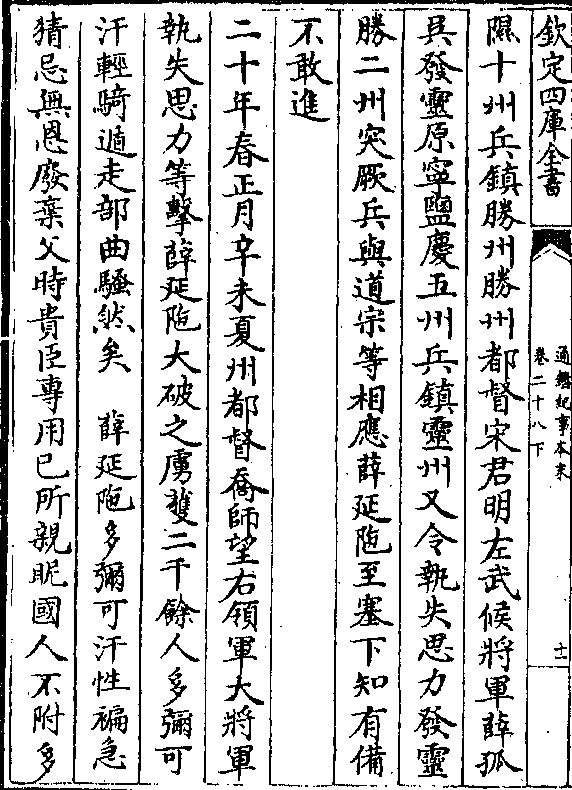 欽定四庫全書
通鑑紀事本末
卷二十八下
十一
隰十州兵鎮勝州勝州都督宋君明左武候將軍薛孤
吳發靈原寧鹽慶五州兵鎮靈州又令執失思力發靈
勝二州突厥兵與道宗等相應薛延陁至塞下知有備
不敢進
二十年春正月辛未夏州都督喬師望右領軍大將軍
執失思力等擊薛延陁大破之虜獲二千餘人多彌可
汗輕騎遁走部曲騷然矣　薛延陁多彌可汗性褊急
猜忌無恩廢棄父時貴臣專用已所親昵國人不附多